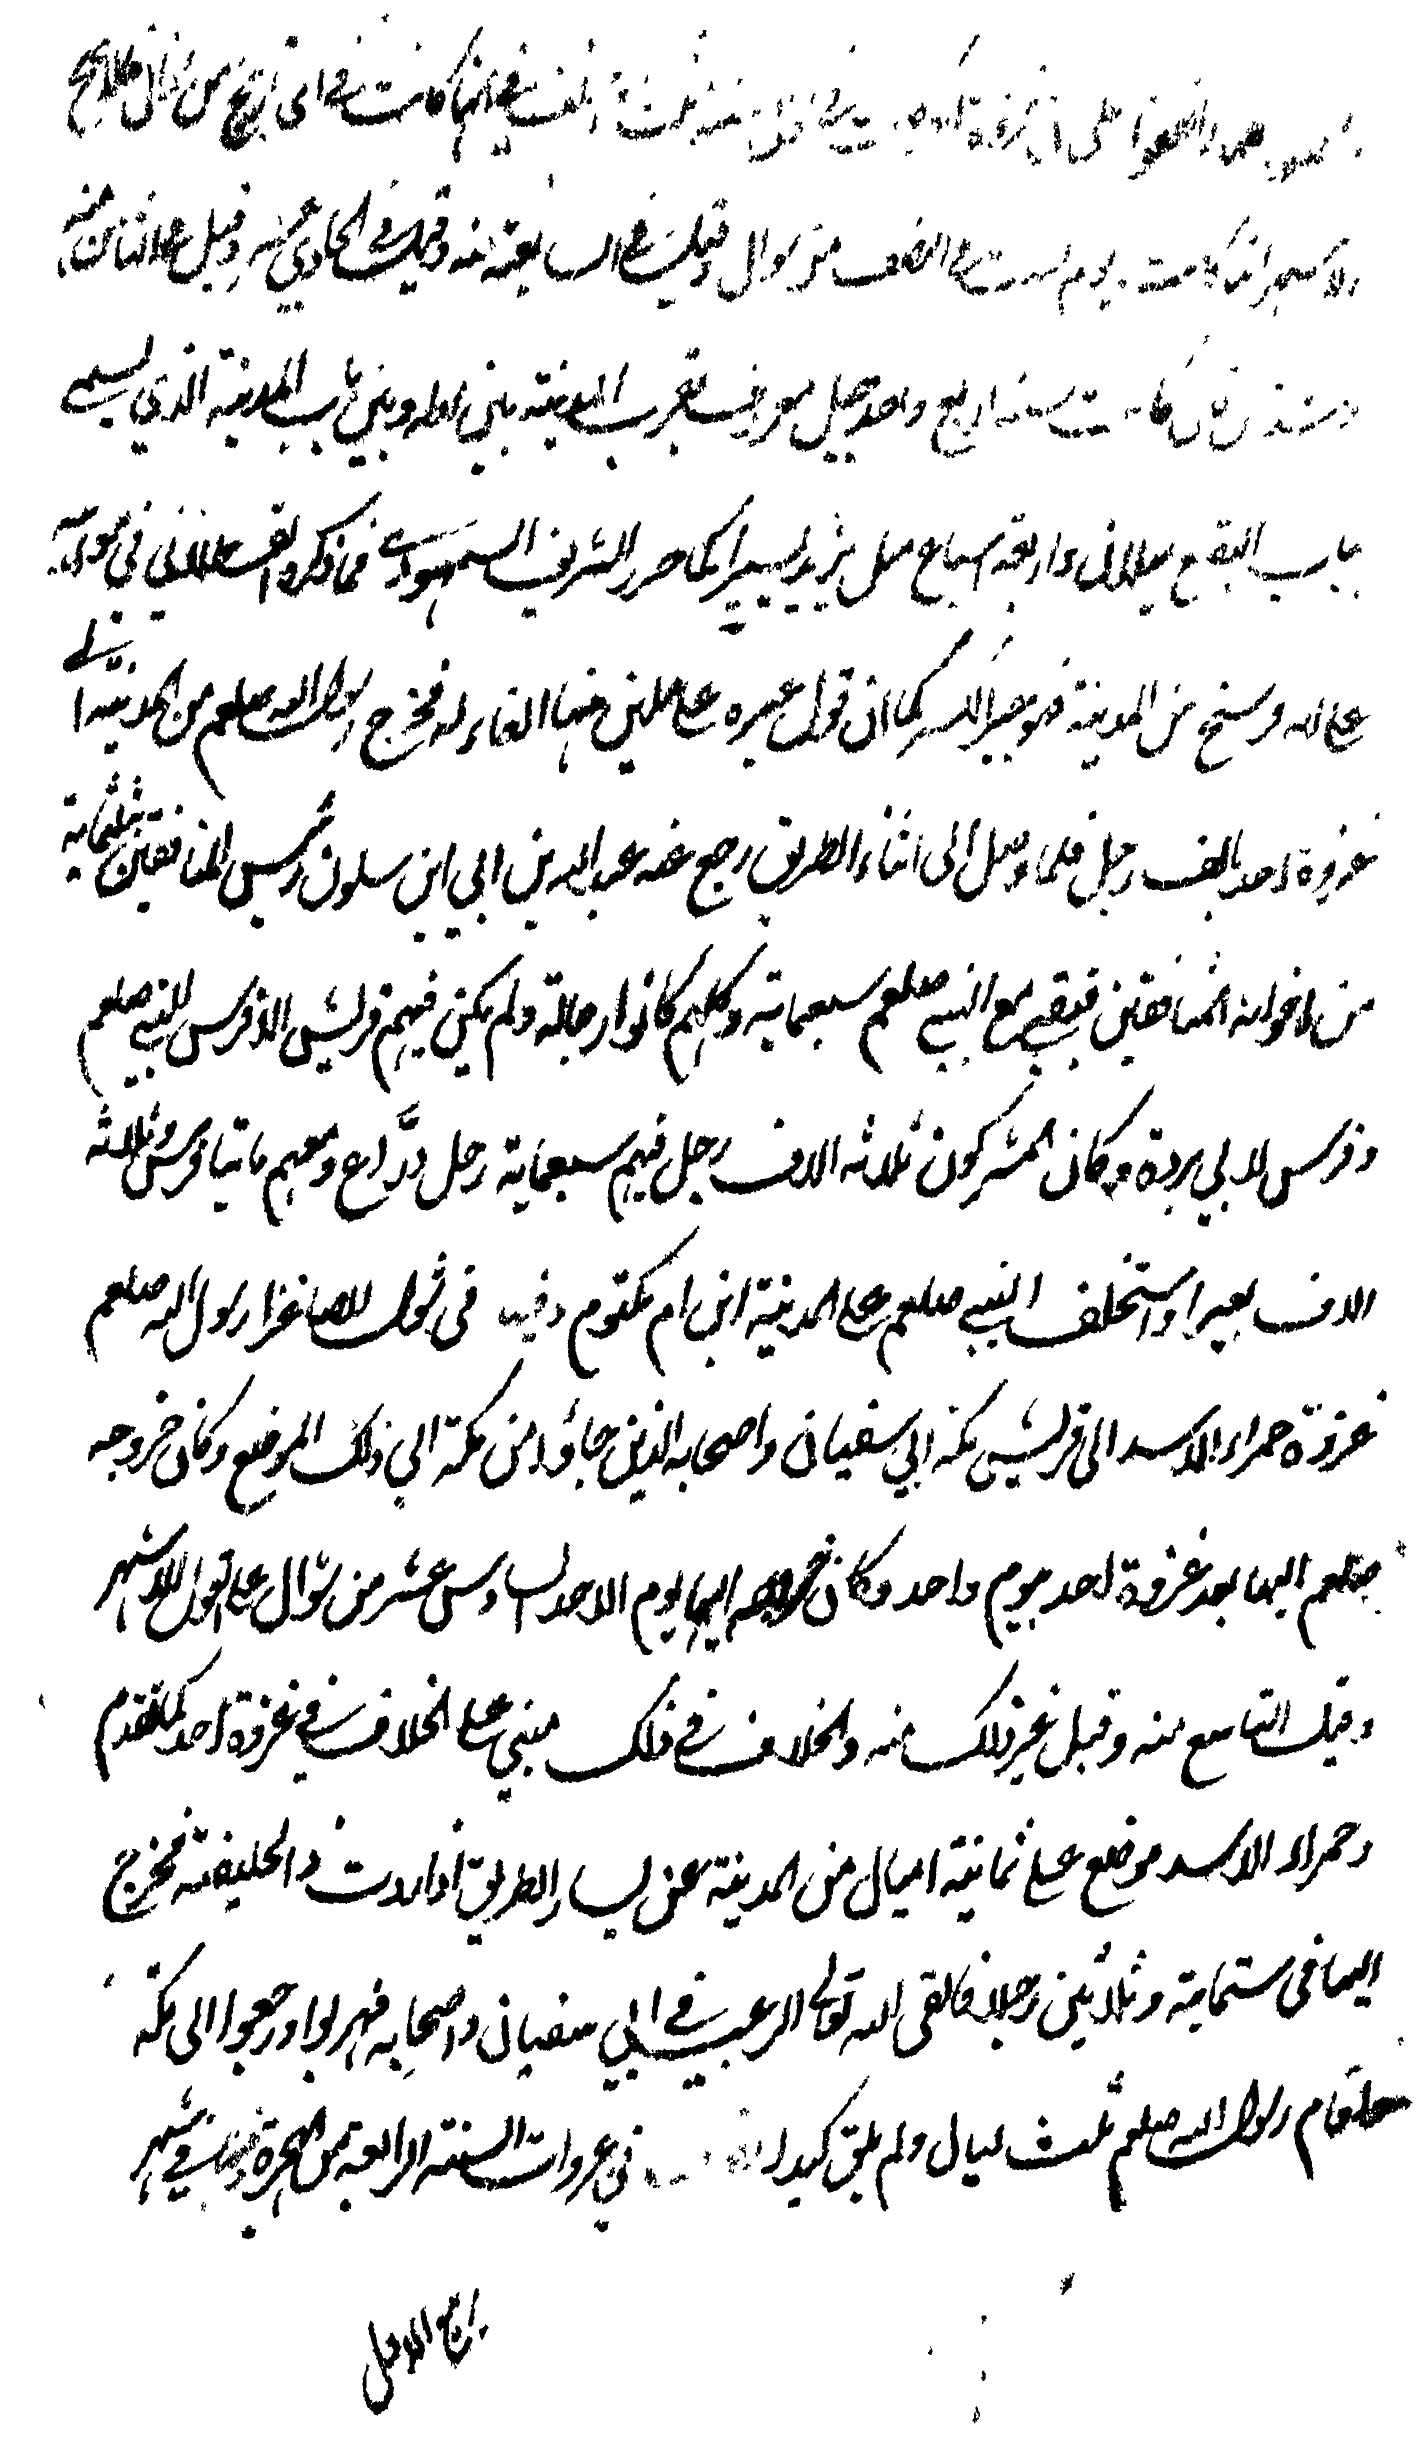 واتفقوا على ان غزوة احد كانت في شوال سنة ثلث واختلف في انها كانت في اي تاريخ من شوال فالراجح
الاشهر انها كانت يوم السبت في النصف من شوال وقيل في السابعة منه وقيل في الحادي عشر وقيل
كانت سنة اربع واحد جبل معروف بقرب المدينة بين اوله وبين باب المدينة الذي يسمى
باب البقيع ميلان واربعة اسباع ميل يزيد يسيرا كما حرره الشريف السمهودي فما ذكره القسطلاني في مواهبه
على اقل من فرسخ من المدينة فهو جبر للكسر كما ان قول غيره على ميلين فيها الغاء له فخرج رسول الله صلعم من المدينة الى
غزوة احد بالف رجل فلما وصل الى اثناء الطريق رجع عنه عبد الله بن ابي ابن سلول رئيس المنافقين بثلثماية
من اخوانه المنافقين فبقي مع النبي صلعم سبعماية وكلهم كانوا رجالة ولم يكن فيهم فرس الا فرس للنبي صلعم
وفرس لابي بردة وكان المشركون ثلاثة الاف رجل فيهم سبعماية رجل درّاع ومعهم مايتا فرس وثلاثة
الاف بعيرا واستخلف النبي صلعم على المدينة ابن ام مكتوم وفيها في شوال ايضا غزا رسول الله صلعم
غزوة حمراء الاسد الى قريش مكة ابي سفيان واصحابه الذين جاؤا من مكة الى ذلك الموضع وكان خروجه
صلعم اليها بعد غزوة احد بيوم واحد وكان خروجه اليها يوم الاحد السادس عشر من شوال على القول الاشهر
وقيل التاسع منه وقيل غير ذلك منه والخلاف في ذلك مبني على الخلاف في غزوة احد كما تقدم
وحمراء الاسد موضع على ثمانية اميال من المدينة عن يسار الطريق اذا اردت ذا الحليفة فخرج
اليها في ستماية وثلاثين رجلا فالقى الله تعالى الرعب في ابي سفيان واصحابه فهربوا ورجعوا الى مكة
فاقام رسول الله صلعم ثلث ليال ولم يلق كيدا في غزوات السنة الرابعة من الهجرة وفيها في شهر
ربيع الاول